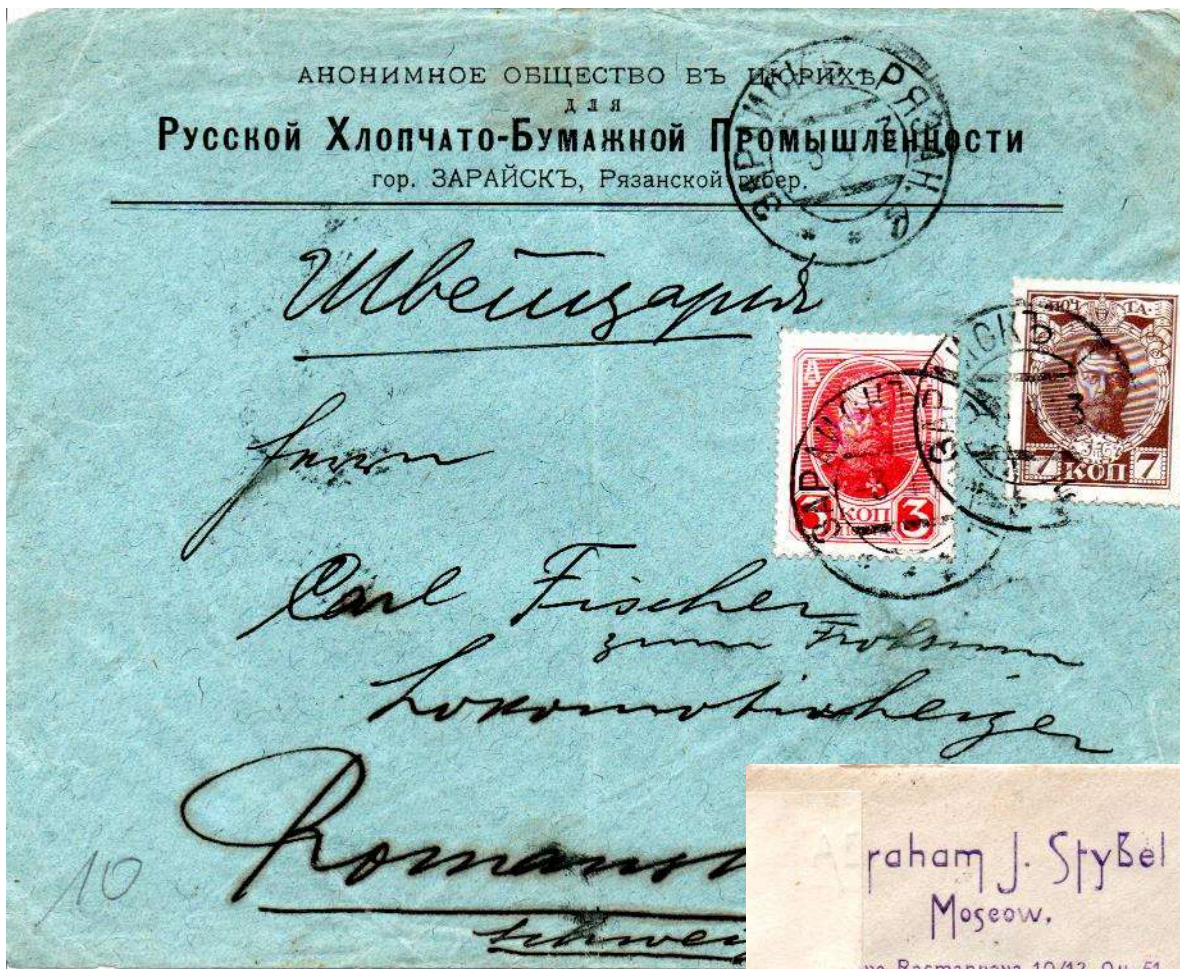 АНОНИМНОЕ ОБЩЕСТВО ВЪ ЦЮРИХѢ
ДЛЯ
Русской Хлопчато-Бумажной Промышленности
гор. ЗАРАЙСКЪ, Рязанской губер.
ЗАРАЙСКЪ РЯЗАН. Г.
Швейцарія
Herrn
ПОЧТА
ЗАРАЙСКЪ
ЗАРАЙСКЪ
7 КОП 7
3 КОП 3
Carl Fischer
zum Frohsinn
Lokomotivheizer
Romansh
Schweiz
10
raham J. Stybel
Moscow.
10/12
51